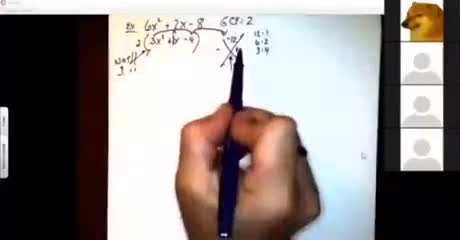 Ex 6x² + 2x - 8 GCF: 2
2(3x² + 1x - 4) -12 12·1
6·2
3·4
Not 1